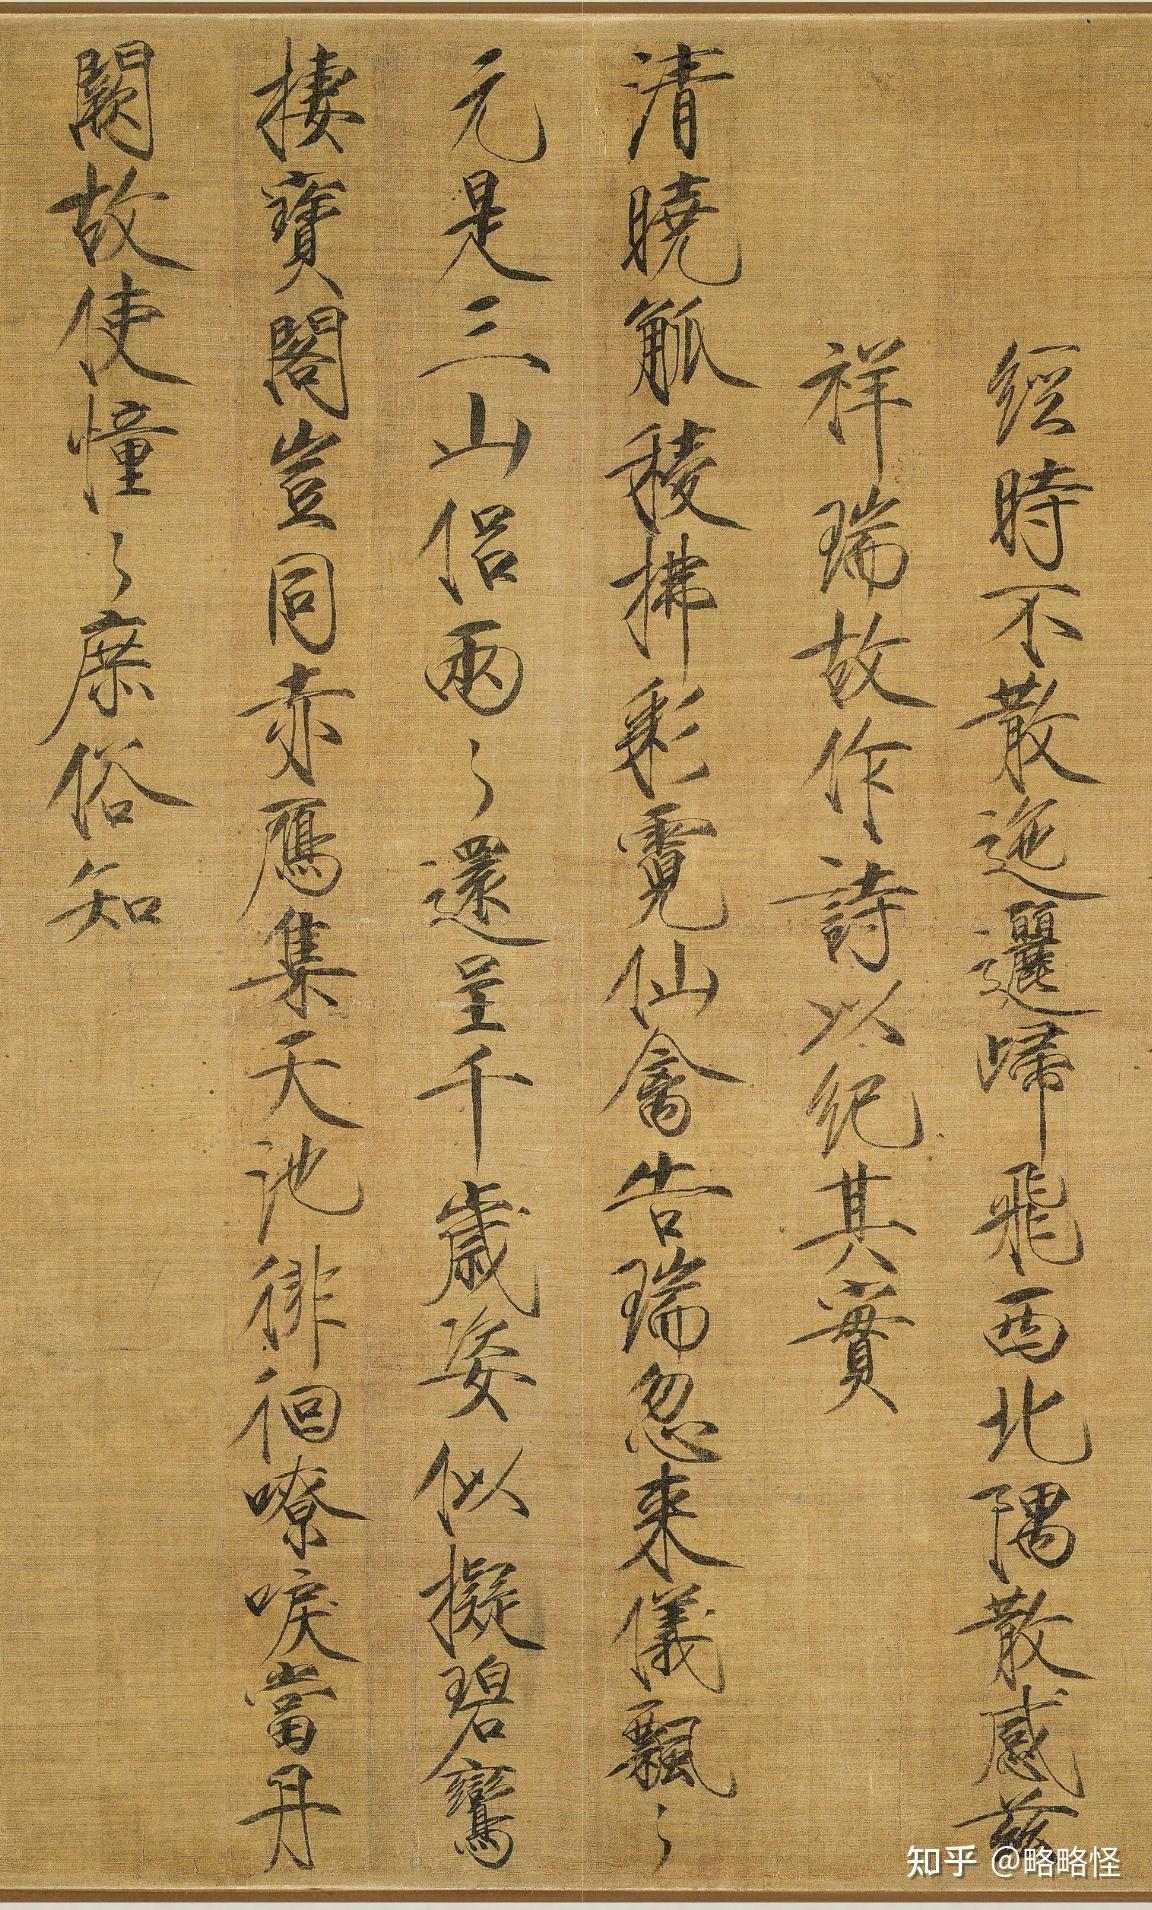 經時不散迤邐歸飛西北隅散感茲
祥瑞故作詩以紀其實
清曉觚稜拂彩霓仙禽告瑞忽来儀飄〻
元是三山侣兩〻還呈千歲姿似擬碧鸞
棲寶閣豈同赤鴈集天池徘徊嘹唳當丹
闕故使憧〻庶俗知
知乎 @略略怪